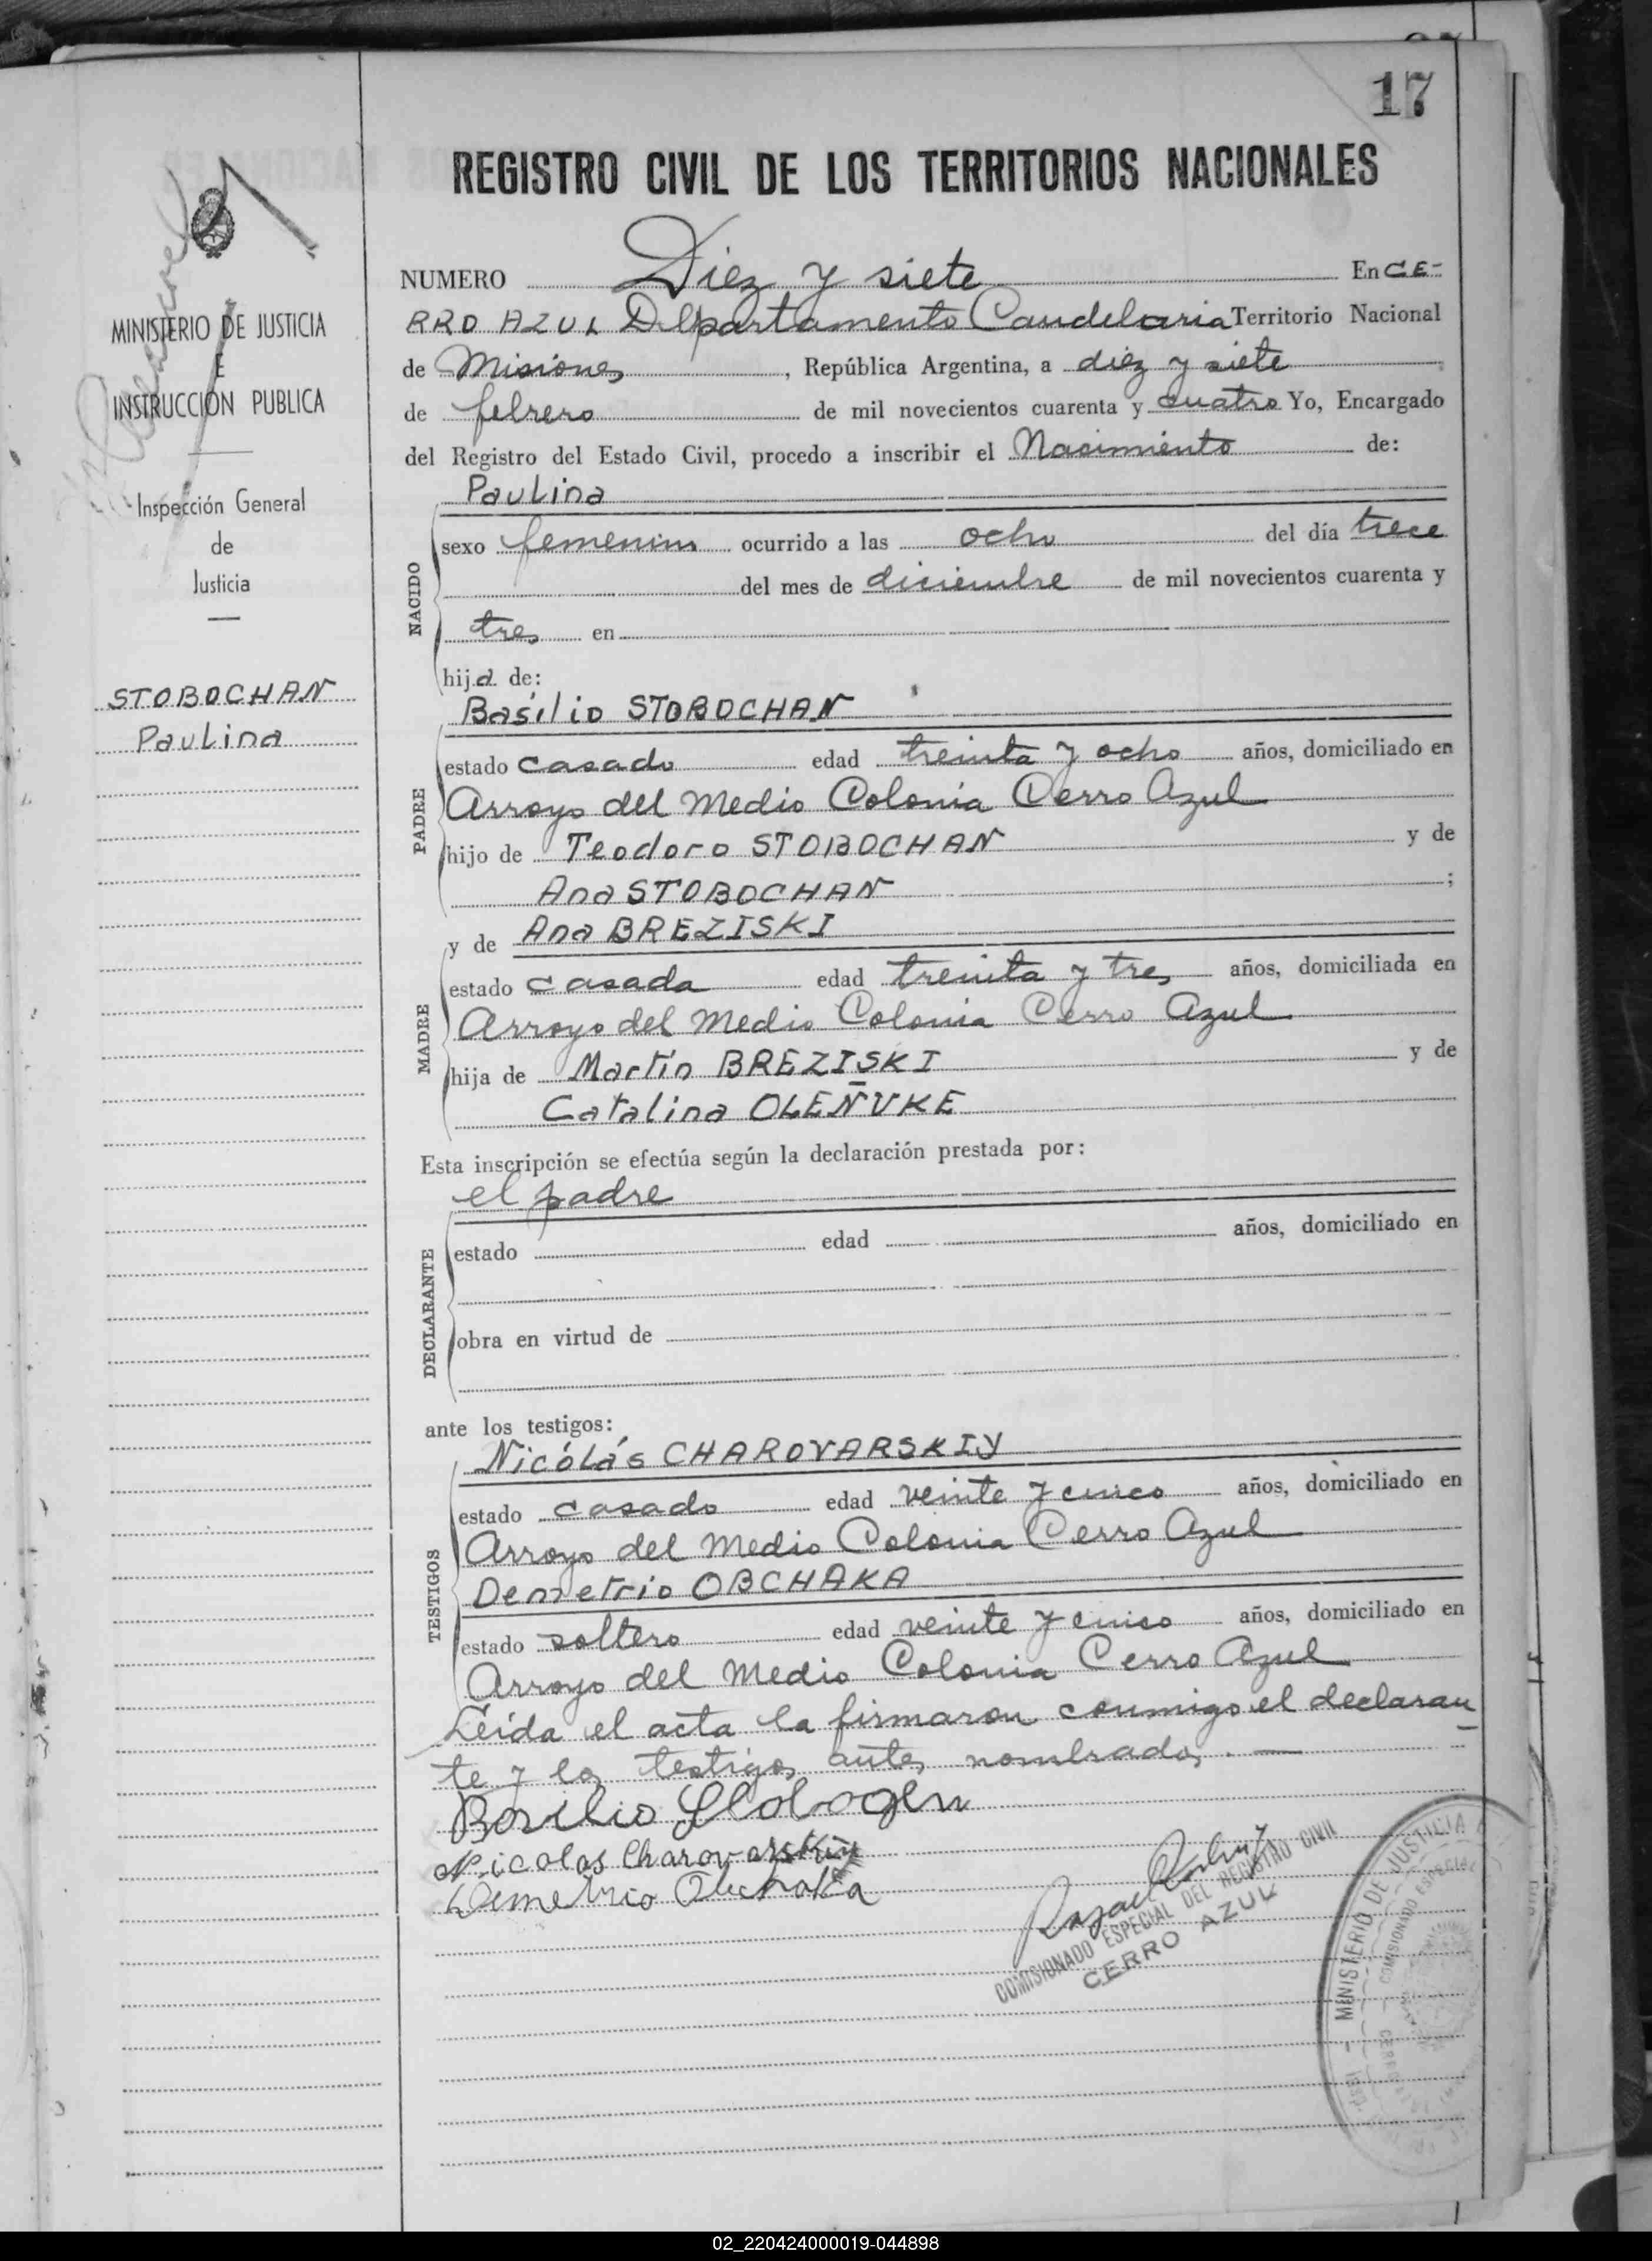 17
REGISTRO CIVIL DE LOS TERRITORIOS NACIONALES
MINISTERIO DE JUSTICIA
E
INSTRUCCIÓN PUBLICA
Inspección General
de
Justicia
STOBOCHAN
Paulina
NUMERO Diez y siete En CE-
RRO AZUL Departamento Candelaria Territorio Nacional
de Misiones, República Argentina, a diez y siete
de febrero de mil novecientos cuarenta y cuatro Yo, Encargado
del Registro del Estado Civil, procedo a inscribir el Nacimiento de:
Paulina
NACIDO
sexo femenino ocurrido a las ocho del día trece
del mes de diciembre de mil novecientos cuarenta y
tres en
hija de:
Basilio STOBOCHAN
PADRE
estado casado edad treinta y ocho años, domiciliado en
Arroyo del Medio Colonia Cerro Azul
hijo de Teodoro STOBOCHAN y de
Ana STOBOCHAN ;
y de Ana BREZISKI
MADRE
estado casada edad treinta y tres años, domiciliada en
Arroyo del Medio Colonia Cerro Azul
hija de Martín BREZISKI y de
Catalina OLEÑUKE
Esta inscripción se efectúa según la declaración prestada por:
el padre
DECLARANTE
estado edad años, domiciliado en
obra en virtud de
ante los testigos:
Nicólás CHAROVARSKIY
TESTIGOS
estado casado edad veinte y cinco años, domiciliado en
Arroyo del Medio Colonia Cerro Azul
Demetrio OBCHAKA
estado soltero edad veinte y cinco años, domiciliado en
Arroyo del Medio Colonia Cerro Azul
Leída el acta la firmaron conmigo el declaran
te y los testigos antes nombrados.—
Basilio
Nicolas Charovarskiy
Demetrio
COMISIONADO ESPECIAL DEL REGISTRO CIVIL
CERRO AZUL
MINISTERIO DE JUSTICIA
COMISIONADO ESPECIAL
02_220424000019-044898